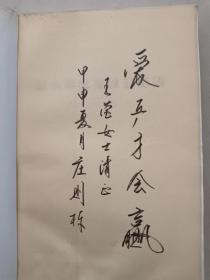 爱乒才会赢
王莹女士清正
甲申夏月庄则栋